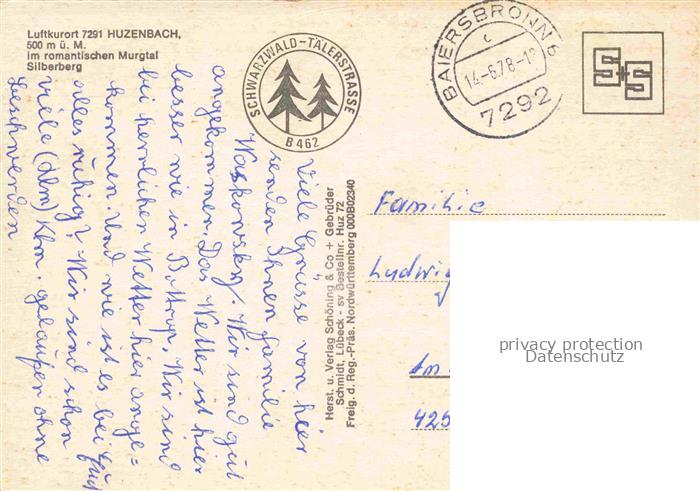 Luftkurort 7291 HUZENBACH,
500 m ü. M.
im romantischen Murgtal
Silberberg
SCHWARZWALD-TÄLERSTRASSE
B 462
BAIERSBRONN 6
c
14.-6.78.-1
7292
Viele Grüsse von hier
senden Ihnen Familie
Waskowsky. Wir sind gut
angekommen. Das Wetter ist hier
besser wie in Bottrop. Wir sind
bei herrlichen Wetter hier ange=
kommen. Und wie ist es bei Euch
alles ruhig? Wir sind schon
viele (dlm) Klm. gelaufen ohne
Beschwerden
Herst. u. Verlag Schöning & Co + Gebrüder
Schmidt, Lübeck - sv Bestellnr. Huz 72
Freig. d. Reg.-Präs. Nordwürttemberg 000B02340
Familie
Ludwig
Am
425
privacy protection
Datenschutz